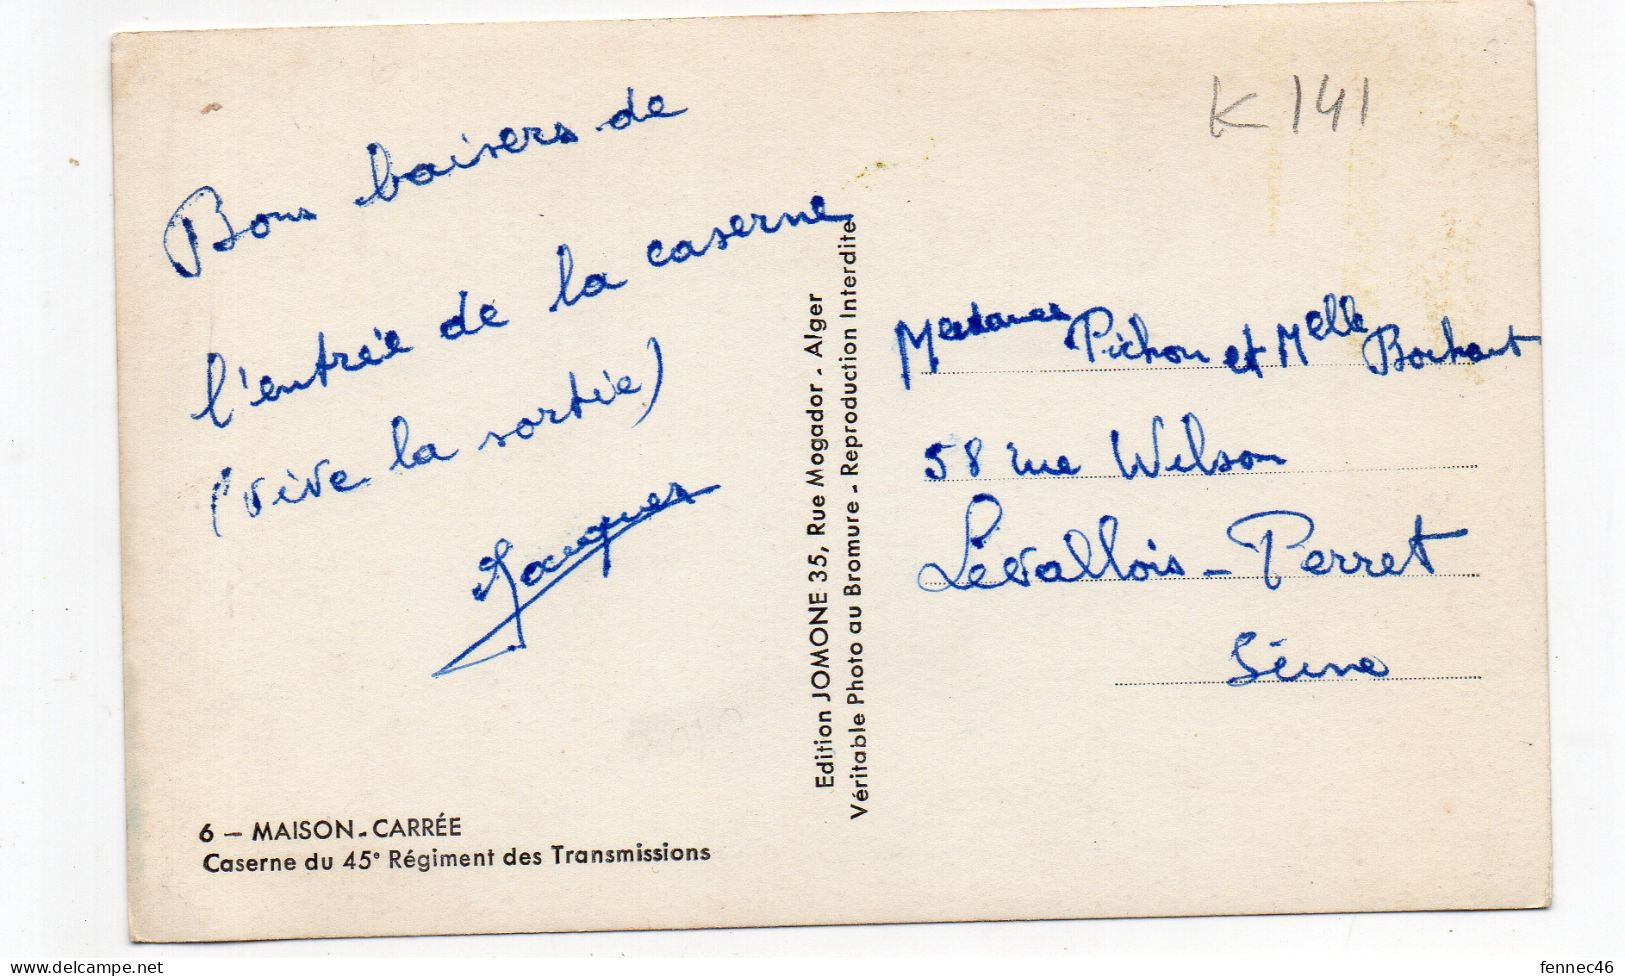 K 141
Bons baisers de
l'entrée de la caserne
(vive la sortie)
Jacques
Edition JOMONE 35, Rue Mogador - Alger
Véritable Photo au Bromure - Reproduction Interdite
Pichon et Melle
58 rue Wilson
Levallois-Perret
Seine
6 — MAISON-CARRÉE
Caserne du 45e Régiment des Transmissions
delcampe.net
fennec46